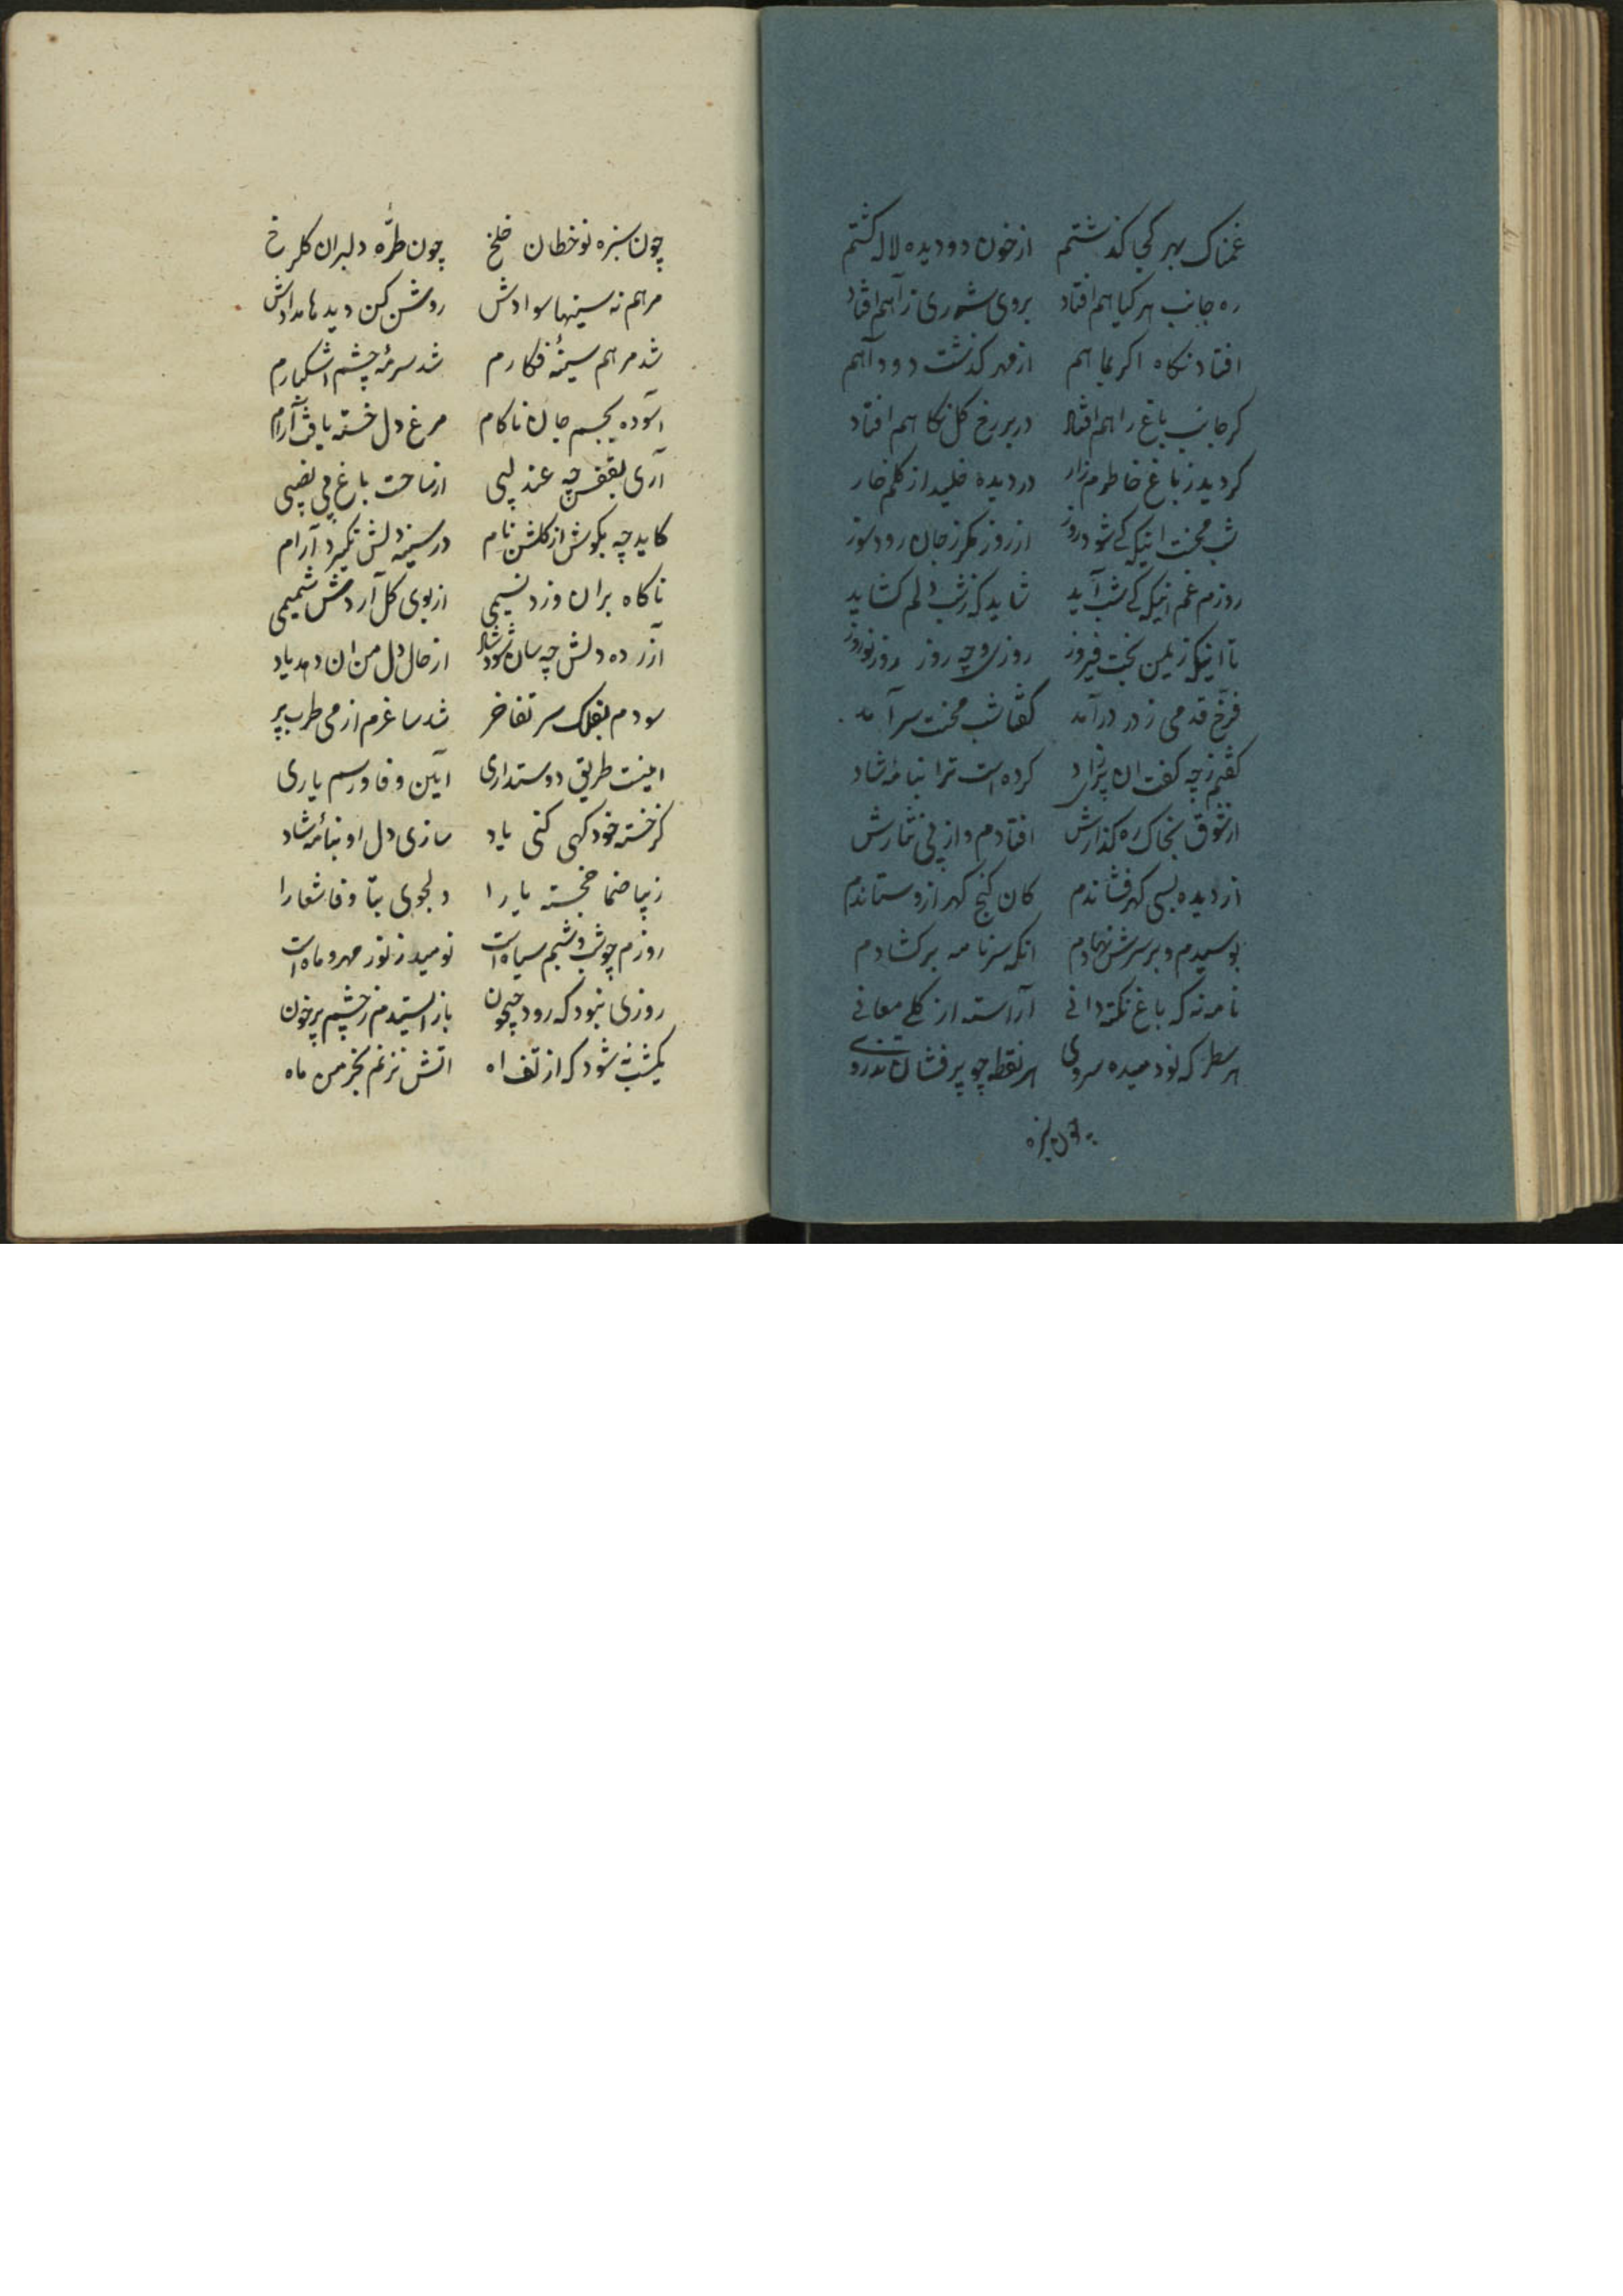 غمناک بهر کجا کذشتم از خون دو دیده لاله کشتم
ره جانب هر کیاهم افتاد بروی شرری ز آهم افتاد
افتاد نکاه اکر بماهم از مهر کذشت دود آهم
کر جانب باغ راهم افتاد در بر رخ کل نکاهم افتاد
کردید ز باغ خاطرم زار در دیده خلید از کلم خار
شب محنت اینکه کی شود روز از روز مکر ز جان رود سوز
روزم غم اینکه کی شب آید شاید که ز شب دلم کشاید
تا اینکه ز یمن بخت فیروز روزی و چه روز روز نوروز
فرّخ قدمی ز در درآمد کفتا شب محنت سرآمد
کفتم ز چه کفت ان پریزاد کرده است ترا بنامه شاد
از شوق بخاک ره کذارش افتادم و از پی نثارش
از دیده بسی کهر فشاندم کان کنج کهر ازو ستاندم
بوسیدم و بر سرش نهادم انکه سر نامه برکشادم
نامه نه که باغ نکته دانی آراسته از کل معانی
هر سطر که بود میده سروی هر نقطه چو پر فشان تذروی
چون سبزه
چون سبزه نوخطان خلخ چون طرّه دلبران کلرخ
مرهم نه سینها سوادش روشن کن دیدها مدادش
شد مرهم سینهٔ فکارم شد سرمهٔ چشم اشکبارم
آسوده بجسم جان ناکام مرغ دل خسته یافت آرام
آری بقفس چه عندلیبی از ساحت باغ بی نصیبی
کاید چه بکوش از کلشن نام در سینه دلش نکیرد آرام
ناکاه بران وزد نسیمی از بوی کل آردش شمیمی
آزرده دلش چه سان شود شاد از حال دل من ان دهد یاد
سودم بفلک سر تفاخر شد ساغرم از می طرب پر
اینست طریق دوستداری آیین وفا و رسم یاری
کز خسته خود کهی کنی یاد سازی دل او بنامهٔ شاد
زیبا صنما خجسته یارا دلجوی بتا وفا شعارا
روزم چو شب و شبم سیاه است نومید ز نور مهر و ماه است
روزی نبود که رود جیحون باز استدم ز چشم پر خون
یکشب نشود که از تف اه اتش نزنم بخرمن ماه